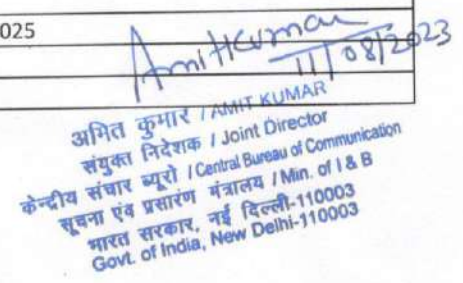 025
Amit Kumar
11/08/2023
अमित कुमार / AMIT KUMAR
संयुक्त निदेशक / Joint Director
केन्द्रीय संचार ब्यूरो / Central Bureau of Communication
सूचना एंव प्रसारंण मंत्रालय / Min. of I & B
भारत सरकार, नई दिल्ली-110003
Govt. of India, New Delhi-110003